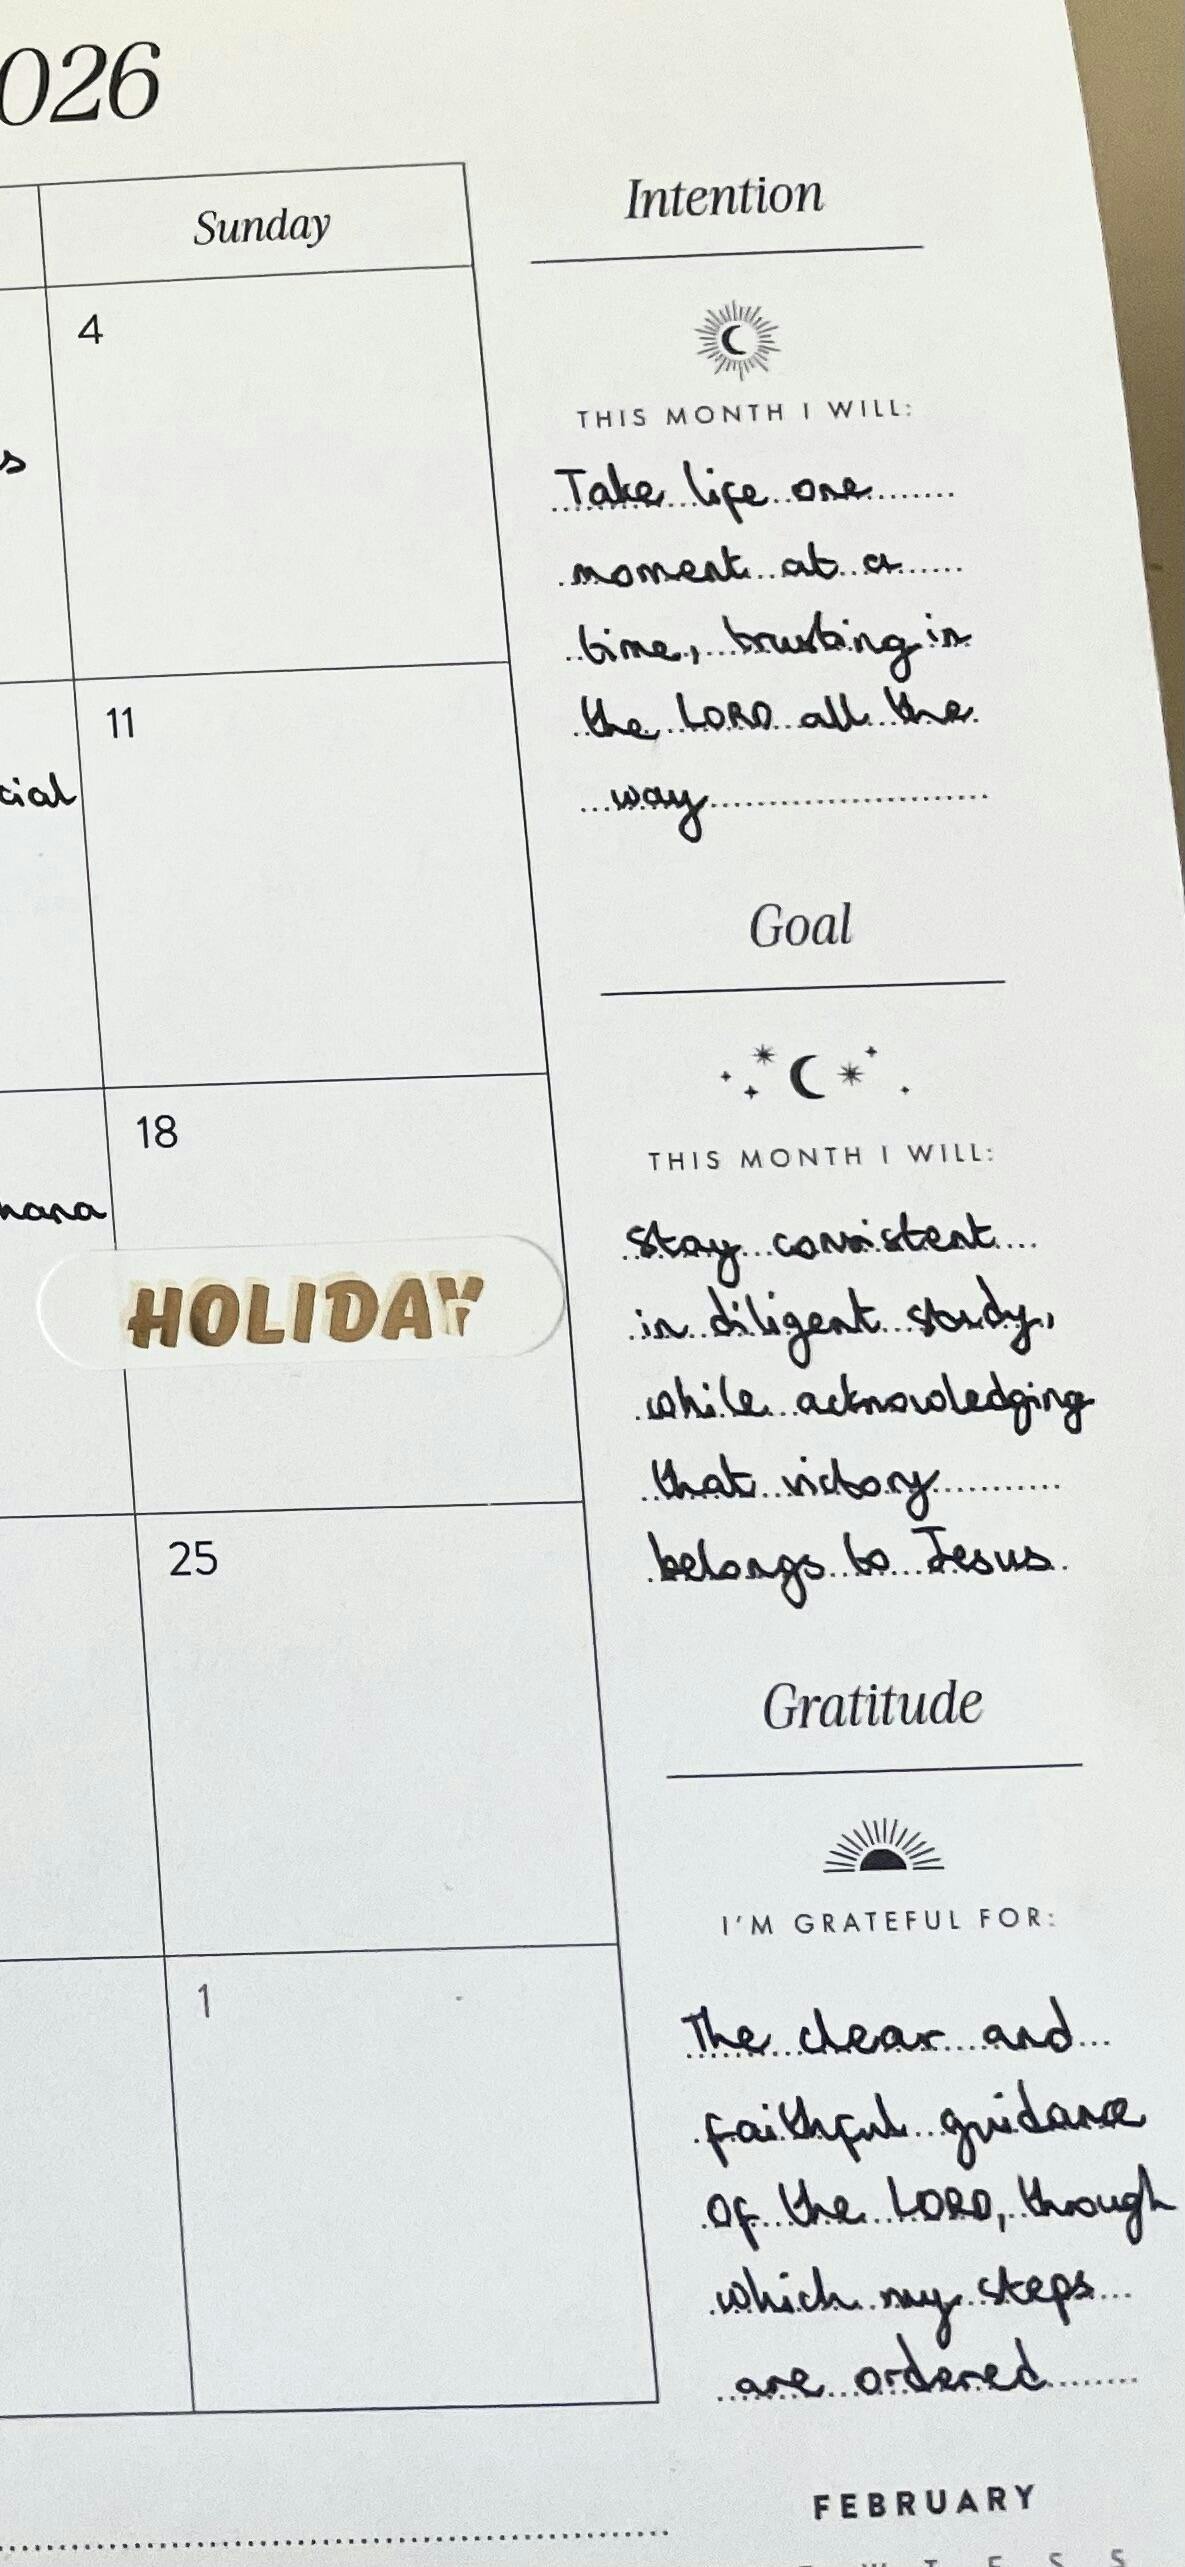 026
Sunday
4
s
11
cial
18
nana
HOLIDAY
25
1
Intention
THIS MONTH I WILL:
Take life one
moment at a
time, trusting in
the LORD all the
way
Goal
THIS MONTH I WILL:
Stay consistent
in diligent study,
while acknowledging
that victory
belongs to Jesus
Gratitude
I'M GRATEFUL FOR:
The clear and
faithful guidance
of the LORD, through
which my steps
are ordered
FEBRUARY
W T F S S